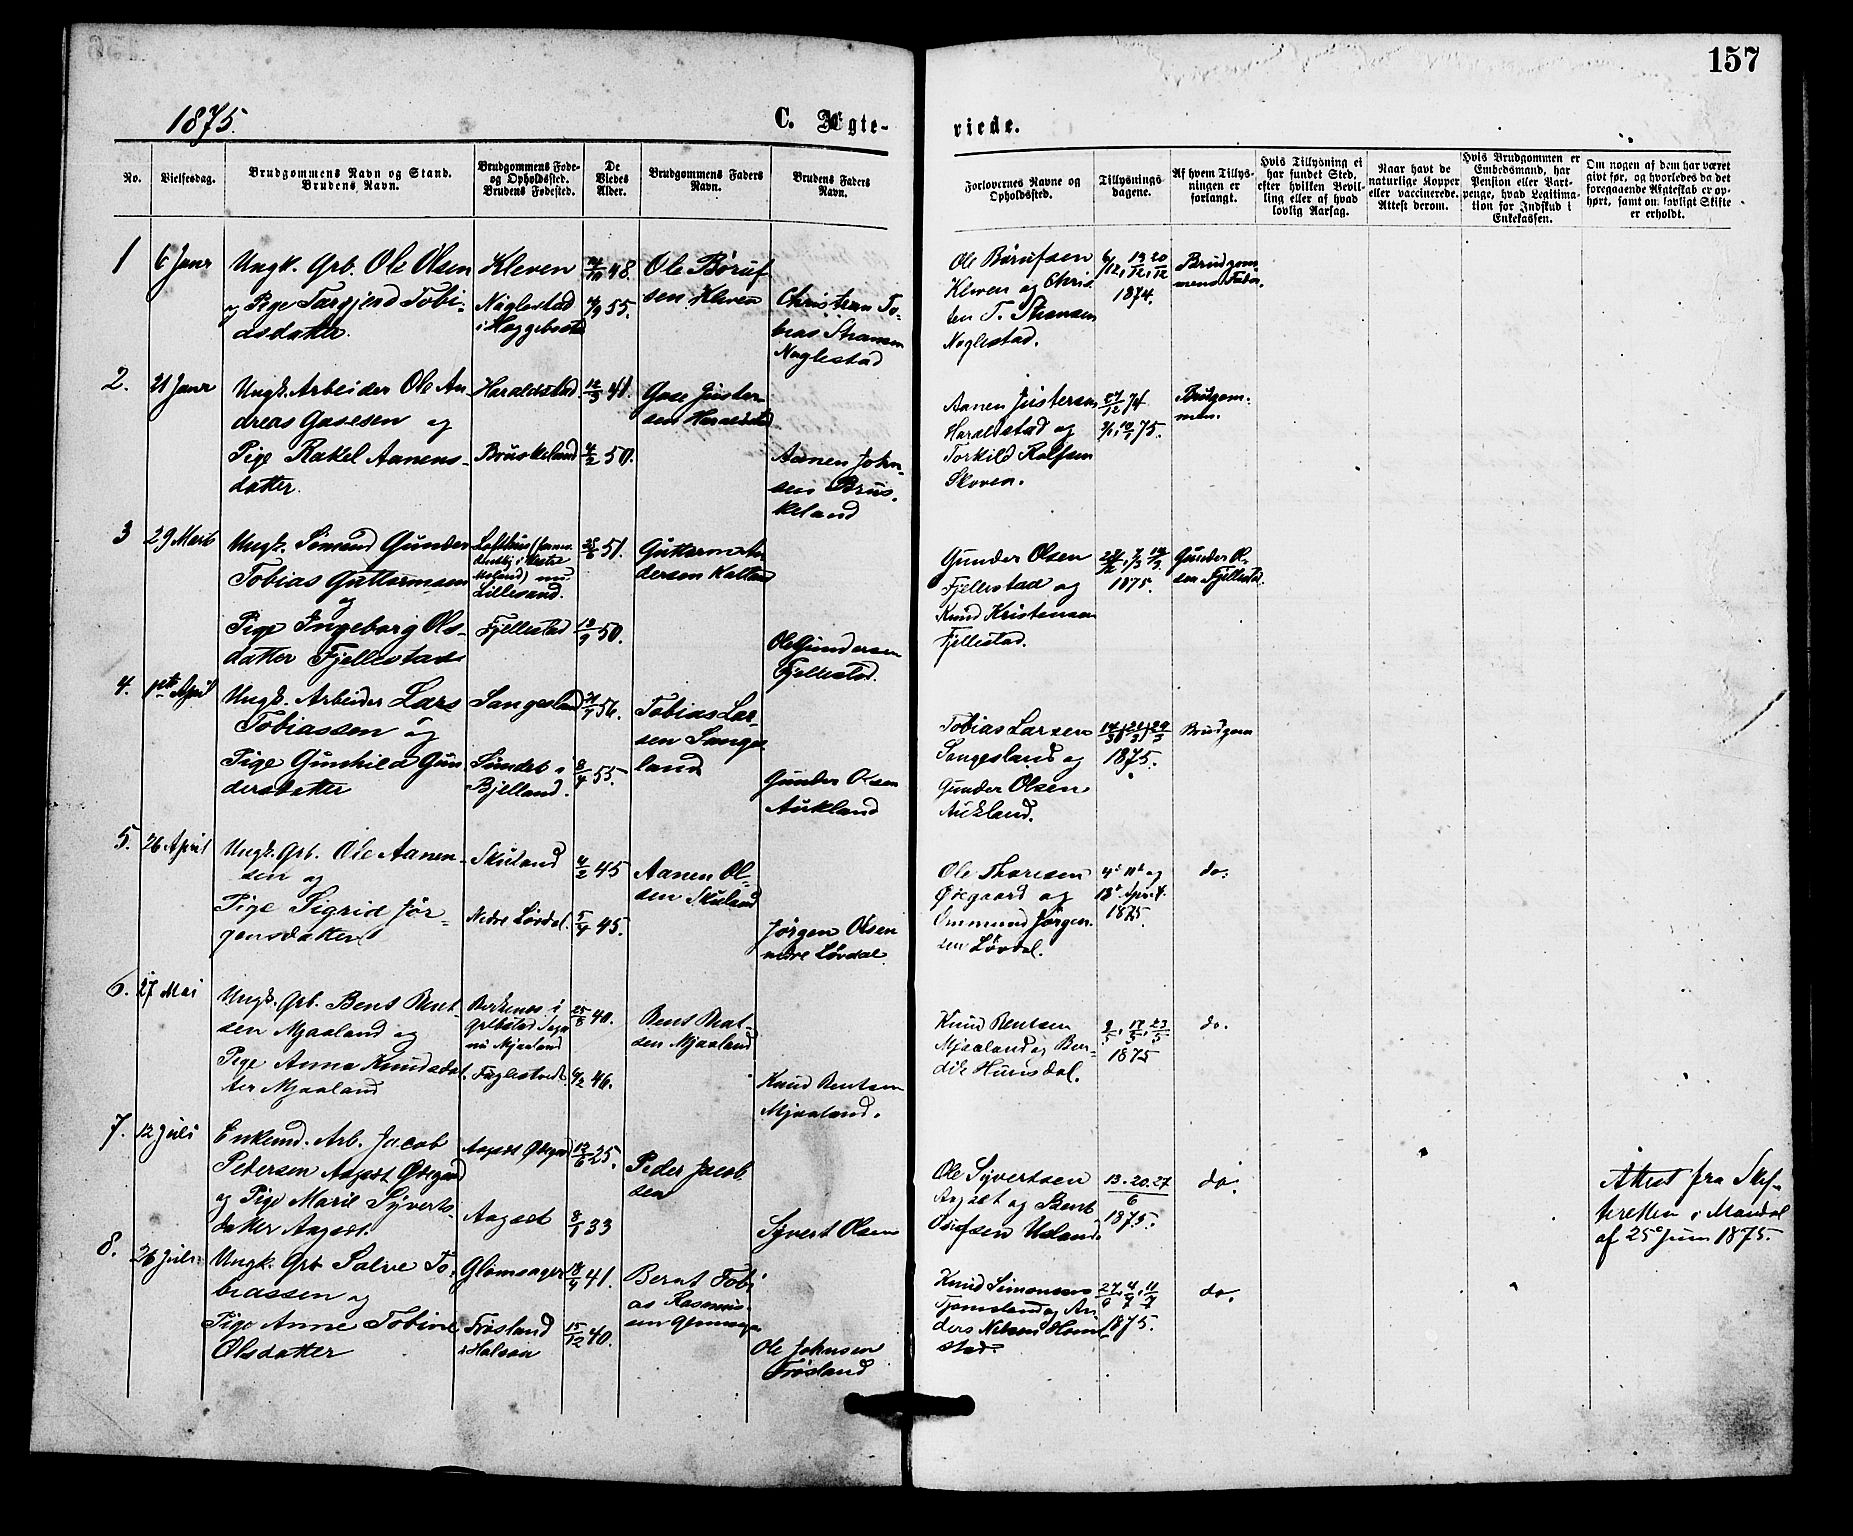 157
1875.
C. Ægte-
viede.
No.
Vielsesdag.
Brudgommens Navn og Stand.
Brudens Navn.
Brudgommens Føde-
og Opholdssted.
Brudens Fødested.
De
Viedes
Alder.
Brudgommens Faders
Navn.
Brudens Faders
Navn.
Forlovernes Navne og
Opholdssted.
Tillysnings-
dagene.
Af hvem Tillys-
ningen er
forlangt.
Hvis Tillysning ei
har fundet Sted,
efter hvilken Bevil-
ling eller af hvad
lovlig Aarsag.
Naar havt de
naturlige Kopper
eller vaccinerede.
Attest derom.
Hvis Brudgommen er
Embedsmand, har
Pension eller Vart-
penge, hvad Legitima-
tion for Indskud i
Enkekassen.
Om nogen af dem har været
givt før, og hvorledes da det
foregaaende Ægteskab er op-
hørt, samt om lovligt Skifte
er erholdt.
1
6 Janr
Ungk. Grb. Ole Olsen
og Pige Targjerd Tobi-
asdatter.
Kleven
Naglestad
i Heggebosta
48.
55.
Ole Børuf
sen Kleven
Christen To-
bias
Naglestad
Ole Børufsen
Kleven og Chris
ten T.
Naglestad.
6/12, 13/12, 20/12
1874.
Brudgom-
mens Fader.
2.
21 Janr
Ungk. Arbeider Ole An
dreas Gasesen og
Pige Rakel Aanens-
datter.
Haraldstad.
Bruskeland
41.
50.
Gase Justen
sen Haraldstad
Aanen John-
sen Brus-
keland
Aanen Justensen
Haraldstad og
Torkild Rolfsen
Skoven.
27/12 74
3/1, 10/1 75.
Brudgom-
men.
3
29 Marts
Ungk. Simund Gunder
Tobias Guttormsen
og
Pige Ingeborg Ols-
datter Fjellestad
Lofthus
nu
Lillesand.
Fjellestad
51.
50.
Guttorm An
dersen
Ole Gundersen
Fjellestad.
Gunder Olsen
Fjellestad og
Knud Kristensen
Fjellestad.
1875.
Gunder Ol-
sen Fjellestad.
4.
1ste April
Ungk. Arbeider Lars
Tobiassen og
Pige Gunhild Gun
dersdatter
Sangesland
Sundet i
Bjelland.
56.
55.
Tobias Lar-
sen Sanges
land
Gunder Olsen
Aukland
Tobias Larsen
Sangesland og
Gunder Olsen
Aukland.
14/3, 21/3, 29/3
1875.
Brudgom
5.
26 April
Ungk. Grb. Ole Aanen-
sen og
Pige Sigrid Jør-
gensdatter
Skuland
Nedre Løvdal.
45
45.
Aanen Ol-
sen Skuland
Jørgen Olsen
nedre Løvdal
Ole Thoresen
Ødegaard og
Ommund Jørgen
sen Løvdal.
4de 11te og
18de April
1875.
do.
6.
27 Mai
Ungk. Grb. Bent Bent
sen Mjaaland og
Pige Anna Knudsdat
ter Mjaaland
Birkenes i
nu Mjaaland
Fuglestvedt
40.
46.
Bent Bent
sen Mjaaland
Knud Bentsen
Mjaaland.
Knud Bentsen
Mjaaland og Ben-
dik Hunsdal.
9/5, 17/5, 23/5
1875
do.
7.
12 Juli
Enkemd. Arb. Jacob
Pedersen Aagedt Ødegaard
og Pige Marie Syverts-
datter Aagedt.
Aagedt Ødegrd
Aagedt
25.
33
Peder Jacob
sen
Syvert Olsen
Ole Syvertsen
Aagedt og Bent
Olufsen
13. 20. 27
6
1875.
do.
Attest fra Skif-
teretten i Mandal
af 25de Juni 1875.
8.
26 Juli
Ungk. Grb Salve To-
biassen og
Pige Anne Tobine
Olsdatter
Glomsager
Frøsland
i Halsaa
18/9 41.
15/12 40.
Bernt Tobi
as Rasmus-
sen
Ole Johnsen
Frøsland
Knud Simonsen
Tjomsland og An
ders Nilsen
stad.
27/6, 4/7, 11/7
1875.
do.